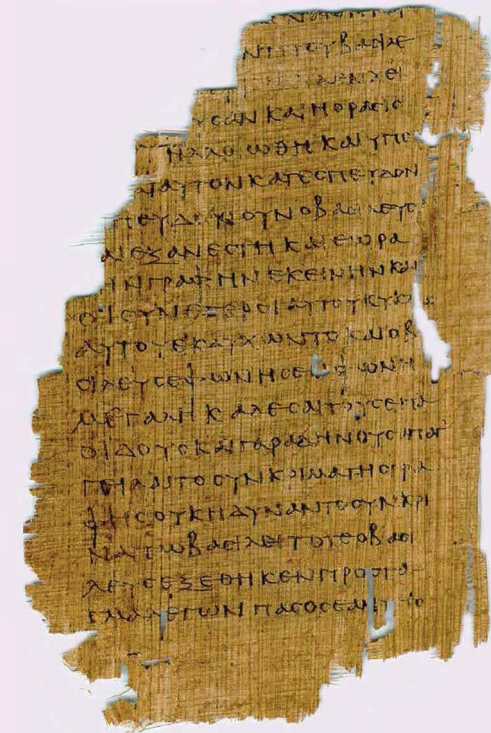 ΝΤΙΤΟΥΒΑΣΙΛΕ
ΥΣΑΝ ΚΑΙ Η ΟΡΑΣΙΣ
ΗΛΛΟΙΩΘΗ ΚΑΙ ΥΠΟ
ΑΥΤΟΝ ΚΑΤΕΣΠΕΥΔΟΝ
ΠΕΥΔ ΟΥΝ Ο ΒΑΣΙΛΕΥΣ
ΕΞΑΝΕΣΤΗ ΚΑΙ ΕΩΡΑ
ΗΝ ΓΡΑΦΗΝ ΕΚΕΙΝΗΝ ΚΑΙ
ΟΙ ΣΥΝΕΤΕΡΟΙ ΑΥΤΟΥ ΚΥΚΛΩ
ΑΥΤΟΥ ΕΚΑΥΧΩΝΤΟ ΚΑΙ Ο Β
ΣΙΛΕΥΣ ΕΦΩΝΗΣΕ ΦΩΝΗ
ΜΕΓΑΛΗ ΚΑΛΕΣΑΙ ΤΟΥΣ ΕΠΑ
ΟΙΔΟΥΣ ΚΑΙ ΓΑΡΑΔΗΝΟΥΣ ΑΠΑΓ
ΓΕΙΛΑΙ ΤΟ ΣΥΝΚΡΙΜΑ ΤΗΣ ΓΡΑ
ΦΗΣ ΟΥΚ ΗΔΥΝΑΝΤΟ ΣΥΝΚΡΙ
ΝΑΙ ΤΩ ΒΑΣΙΛΕΙ ΤΟΤΕ Ο ΒΑΣΙ
ΛΕΥΣ ΕΞΕΘΗΚΕΝ ΠΡΟΣΤΑ
ΓΜΑ ΛΕΓΩΝ ΠΑΣ ΟΣ ΕΑΝ